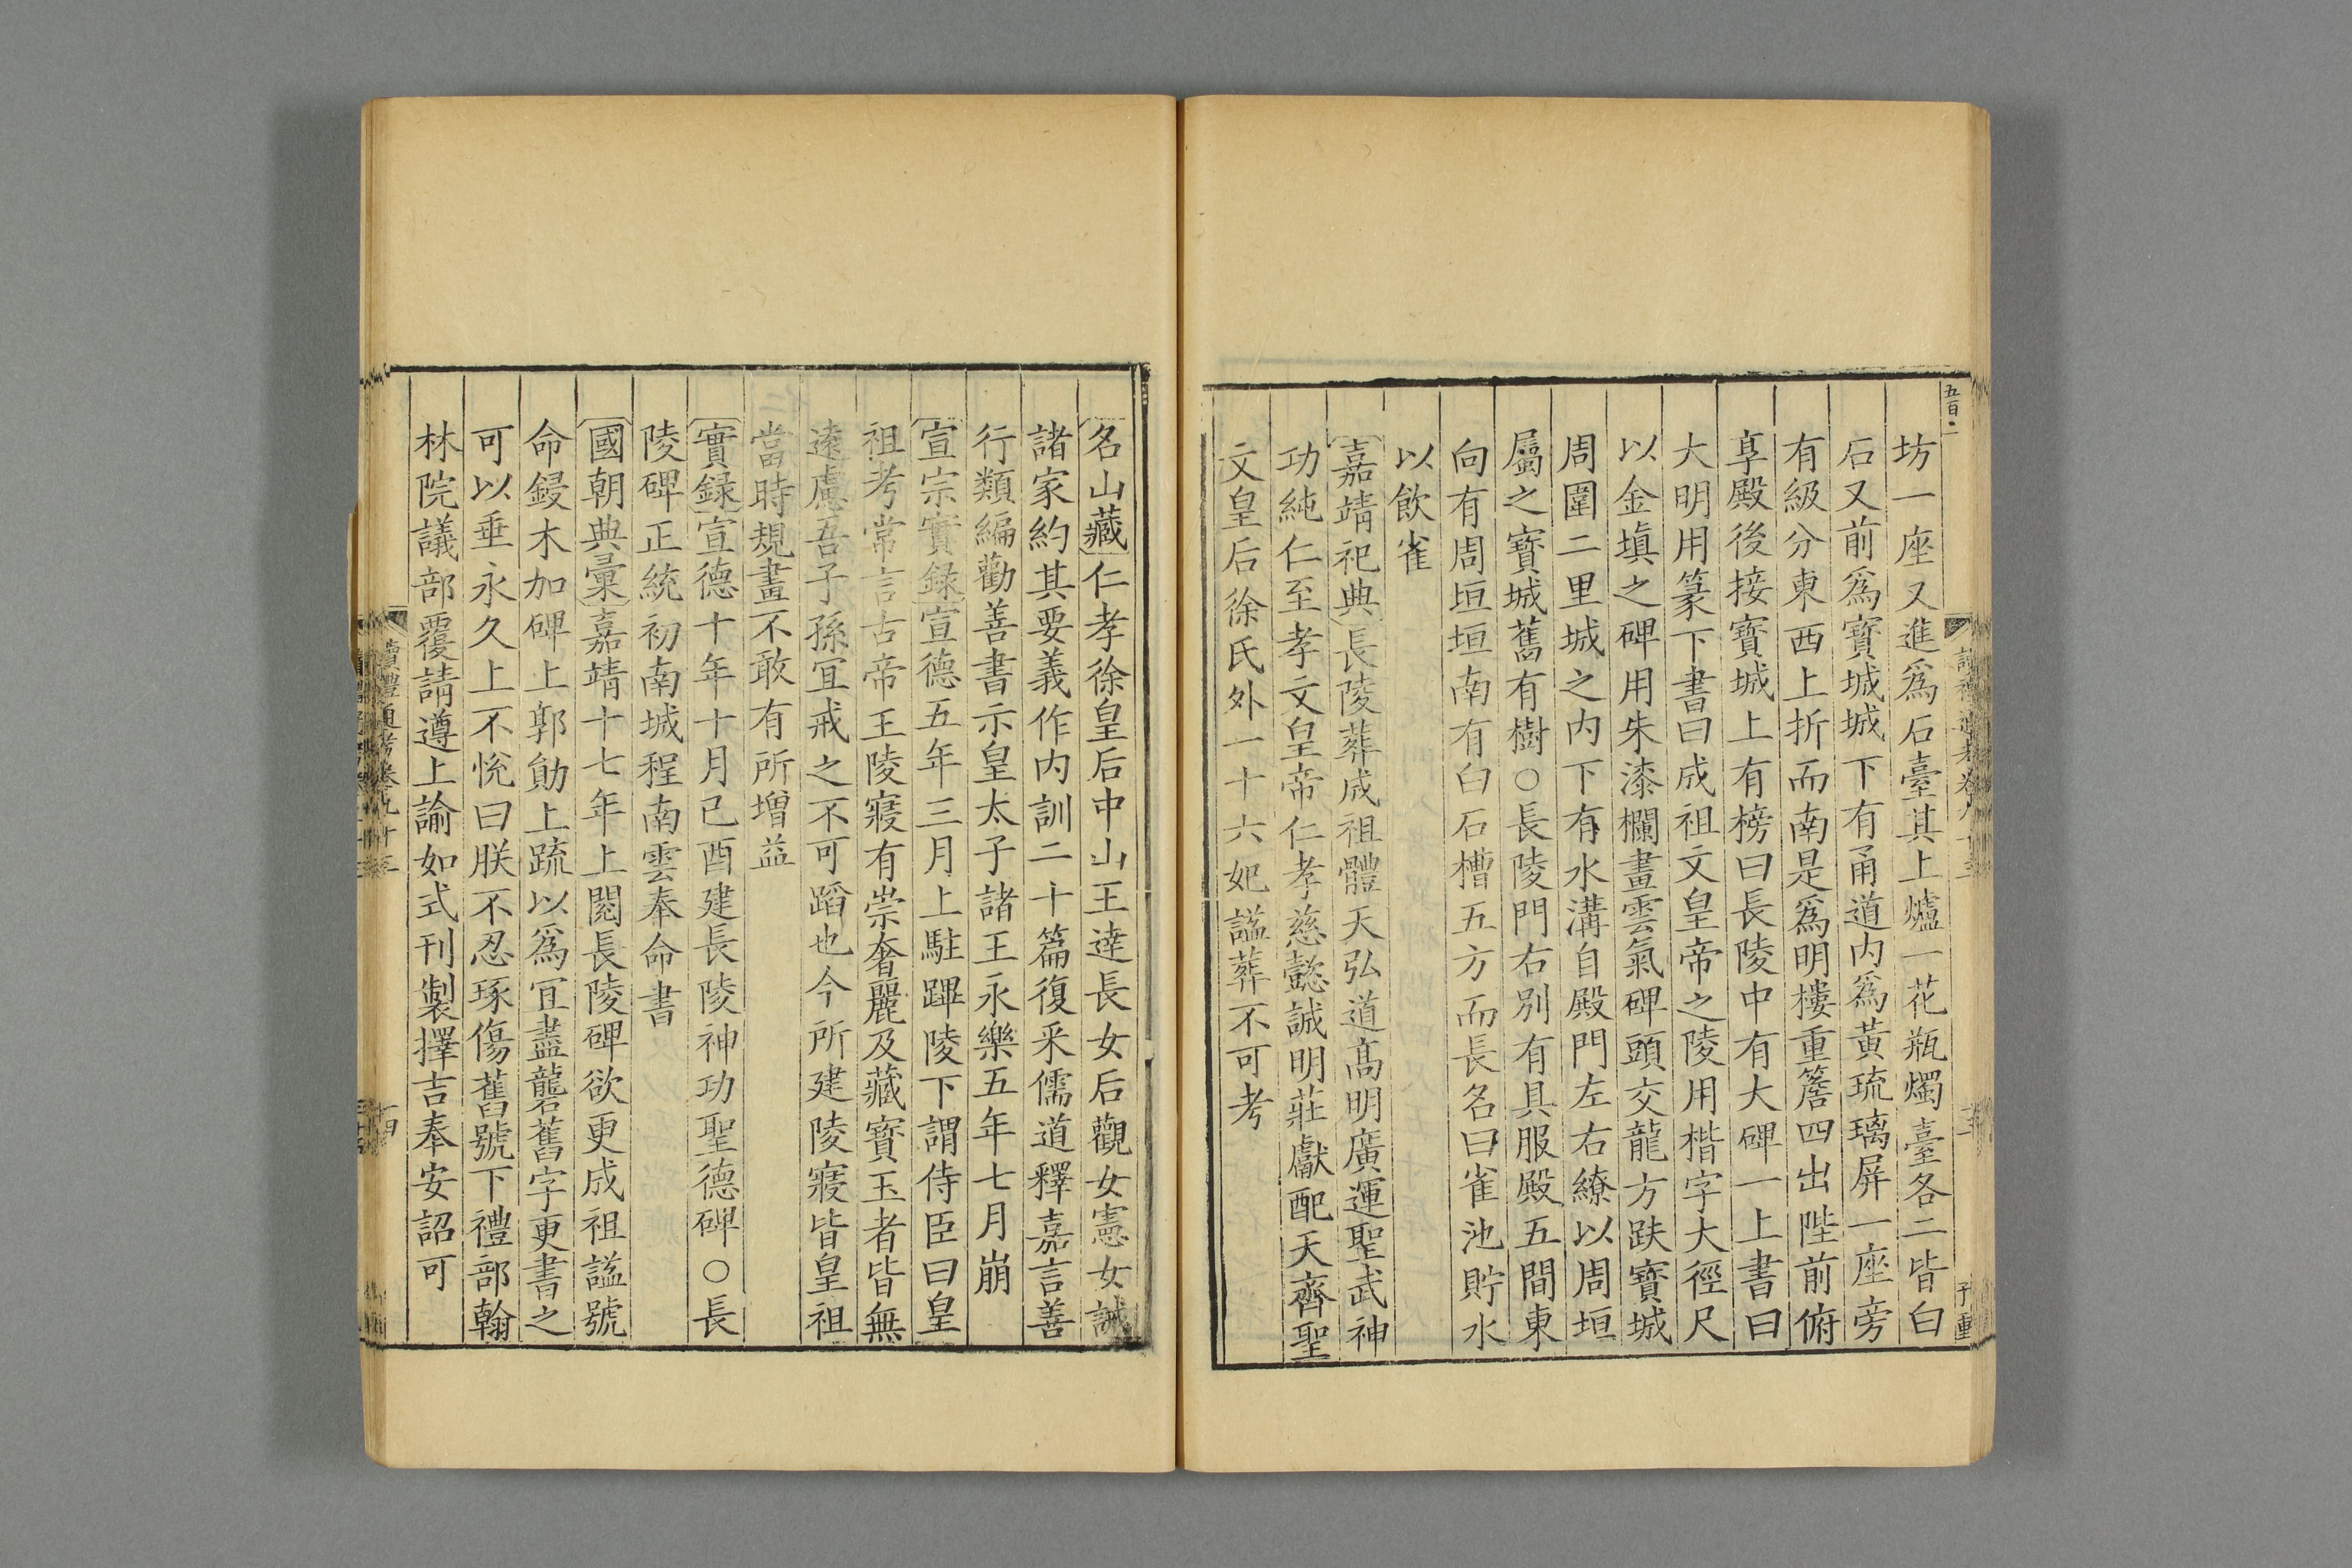 五百·一
坊一座又進爲石臺其上爐一花瓶燭臺各二皆白
石又前爲寶城城下有甬道内爲黃琉璃屏一座旁
有級分東西上折而南是爲明樓重簷四出陛前俯
享殿後接寶城上有榜曰長陵中有大碑一上書曰
大明用篆下書曰成祖文皇帝之陵用楷字大徑尺
以金塡之碑用朱漆欄畫雲氣碑頭交龍方趺寶城
周圍二里城之内下有水溝自殿門左右繚以周垣
屬之寶城舊有樹○長陵門右別有具服殿五間東
向有周垣垣南有白石槽五方而長名曰雀池貯水
以飲雀
嘉靖祀典長陵葬成祖體天弘道高明廣運聖武神
功純仁至孝文皇帝仁孝慈懿誠明莊獻配天齊聖
文皇后徐氏外一十六妃諡葬不可考
名山藏仁孝徐皇后中山王達長女后觀女憲女誡
諸家約其要義作内訓二十篇復采儒道釋嘉言善
行類編勸善書示皇太子諸王永樂五年七月崩
宣宗實録宣德五年三月上駐蹕陵下謂侍臣曰皇
祖考常言古帝王陵寢有崇奢麗及藏寶玉者皆無
遠慮吾子孫宜戒之不可蹈也今所建陵寢皆皇祖
當時規畫不敢有所增益
實録宣德十年十月己酉建長陵神功聖德碑○長
陵碑正統初南城程南雲奉命書
國朝典彙嘉靖十七年上閱長陵碑欲更成祖諡號
命鋟木加碑上郭勛上疏以爲宜盡礱舊字更書之
可以垂永久上不悅曰朕不忍琢傷舊號下禮部翰
林院議部覆請遵上諭如式刊製擇吉奉安詔可
讀禮通考卷九十三
十四